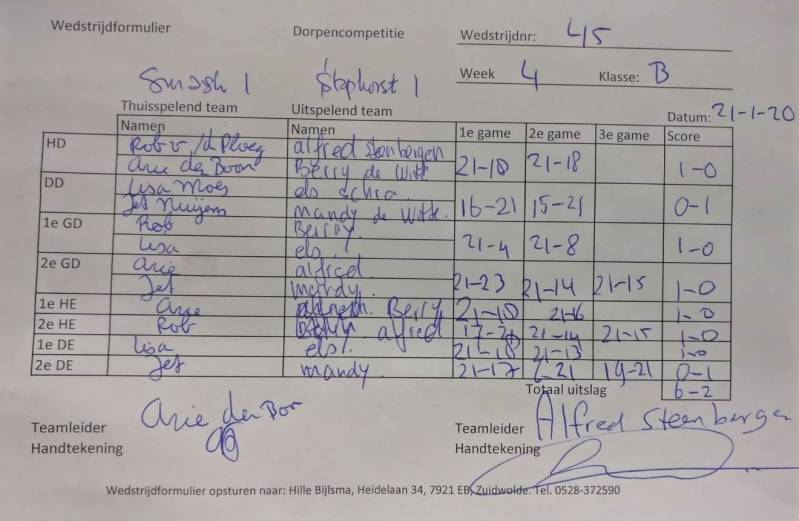 Wedstrijdformulier Dorpencompetitie Wedstrijdnr: 45
Week 4 Klasse: B
Smash 1 Staphorst 1
Thuisspelend team Uitspelend team Datum: 21-1-20
Namen Namen 1e game 2e game 3e game Score
HD Rob v/d Ploeg alfred Steenbergen
Arie den Boon Berry de Witt 21-18 21-18 1-0
DD Lisa Moes els
Jet Nuijens mandy de Witt. 16-21 15-21 0-1
1e GD Rob Berry.
Lisa els. 21-4 21-8 1-0
2e GD Arie alfred.
Jet mandy. 21-23 21-14 21-15 1-0
1e HE Arie Berry 21-18 21-6 1-0
2e HE Rob alfred 17-21 21-14 21-15 1-0
1e DE Lisa els. 21-18 21-13 1-0
2e DE Jet mandy. 21-17 6-21 19-21 0-1
Totaal uitslag 6-2
Teamleider Arie den Boon Teamleider Alfred Steenbergen
Handtekening Handtekening
Wedstrijdformulier opsturen naar: Hille Bijlsma, Heidelaan 34, 7921 EB, Zuidwolde. Tel. 0528-372590